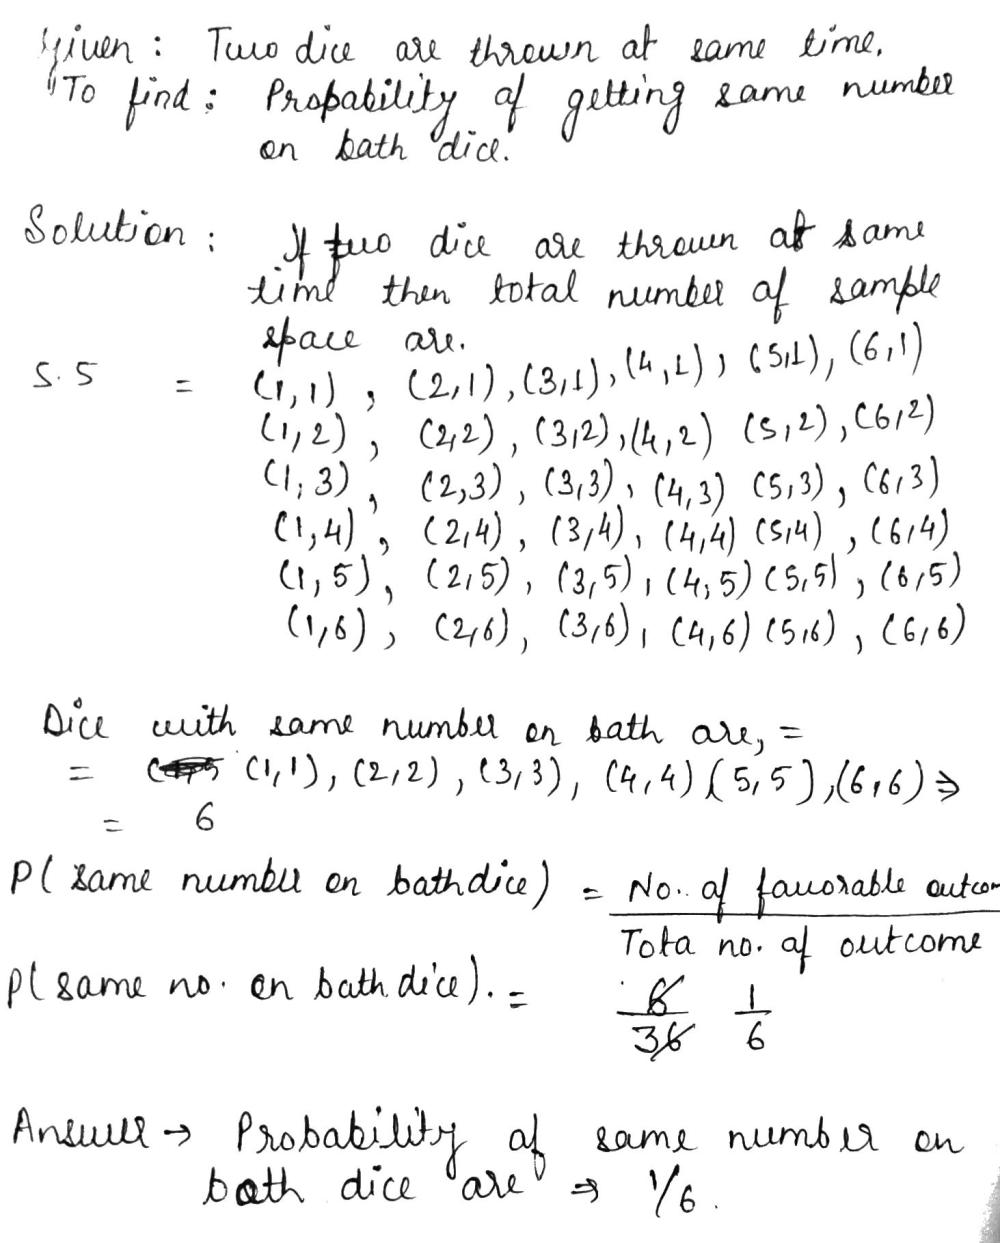 Given : Two dice are thrown at same time.
To find : Probability of getting same number
on both dice.
Solution : If two dice are thrown at same
time then total number of sample
space are.
S.S = (1,1), (2,1), (3,1), (4,1), (5,1), (6,1)
(1,2), (2,2), (3,2), (4,2) (5,2), (6,2)
(1,3), (2,3), (3,3), (4,3) (5,3), (6,3)
(1,4), (2,4), (3,4), (4,4) (5,4), (6,4)
(1,5), (2,5), (3,5), (4,5) (5,5), (6,5)
(1,6), (2,6), (3,6), (4,6) (5,6), (6,6)
Dice with same number on both are, =
= (1,1), (2,2), (3,3), (4,4) (5,5), (6,6) ⇒
= 6
P( same number on both dice) = No. of favorable outcom
Tota no. of outcome
P( same no. on both dice). = 6/36 1/6
Answer → Probability of same number on
both dice are ⇒ 1/6.